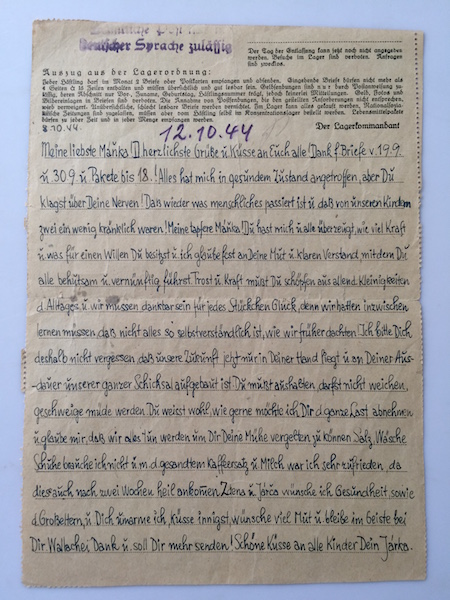 Deutscher Sprache zulässig
Der Tag der Entlassung kann jetzt noch nicht angegeben
werden. Besuche im Lager sind verboten. Anfragen
sind zwecklos.
Auszug aus der Lagerordnung:
Jeder Häftling darf im Monat 2 Briefe oder Postkarten empfangen und absenden. Eingehende Briefe dürfen nicht mehr als
4 Seiten à 15 Zeilen enthalten und müssen übersichtlich und gut lesbar sein. Geldsendungen sind nur durch Postanweisung zu-
lässig, deren Abschnitt nur Vor-, Zuname, Geburtstag, Häftlingsnummer trägt, jedoch keinerlei Mitteilungen. Geld, Fotos und
Bildereinlagen in Briefen sind verboten. Die Annahme von Postsendungen, die den gestellten Anforderungen nicht entsprechen,
wird verweigert. Unübersichtliche, schlecht lesbare Briefe werden vernichtet. Im Lager kann alles gekauft werden. Nationalsozia-
listische Zeitungen sind zugelassen, müssen aber vom Häftling selbst im Konzentrationslager bestellt werden. Lebensmittelpakete
dürfen zu jeder Zeit und in jeder Menge empfangen werden.
Der Lagerkommandant
8.10.44.
12.10.44
Meine liebste Mařka! herzlichste Grüße u Küsse an Euch alle Dank f. Briefe v. 19.9.
u. 30.9. u Pakete bis 18.! Alles hat mich in gesundem Zustand angetroffen, aber Du
klagst über Deine Nerven! Daß wieder was menschliches passiert ist u daß von unseren Kindern
zwei ein wenig kränklich waren! Meine tapfere Mařka! Du hast mich u alle überzeugt, wie viel Kraft
u was für einen Willen Du besitzst u ich glaube fest an Deine Mut u. klaren Verstand, mit dem Du
alle behutsam u. vernünftig führst. Trost u Kraft mußt Du schöpfen aus allen d. Kleinigkeiten
d. Alltages, u wir müssen dankbar sein für jedes Stückchen Glück, denn wir hatten inzwischen
lernen müssen, daß nicht alles so selbstverständlich ist, wie wir früher dachten. Ich bitte Dich,
deshalb nicht vergessen daß unsere Zukunft jetzt nur in Deiner Hand liegt u an Deiner Aus-
dauer unserer ganzer Schicksal aufgebaut ist. Du mußt aushalten, darfst nicht weichen,
geschweige müde werden. Du weisst wohl, wie gerne möchte ich Dir d. ganze Last abnehmen
u glaube mir, daß wir alles tun werden um Dir Deine Mühe vergelten zu können. Salz, Wäsche
Schuhe brauche ich nicht u. m. d. gesandtem Kaffeersatz u Milch war ich sehr zufrieden, da
dies auch nach zwei Wochen heil ankommen. Zdena u Jarča wünsche ich Gesundheit, sowie
d. Großeltern, u Dich umarme ich, Küsse innigst, wünsche viel Mut u bleibe im Geiste bei
Dir. Wallachei Dank u. soll Dir mehr senden! Schöne Küsse an alle Kinder Dein Jarka.